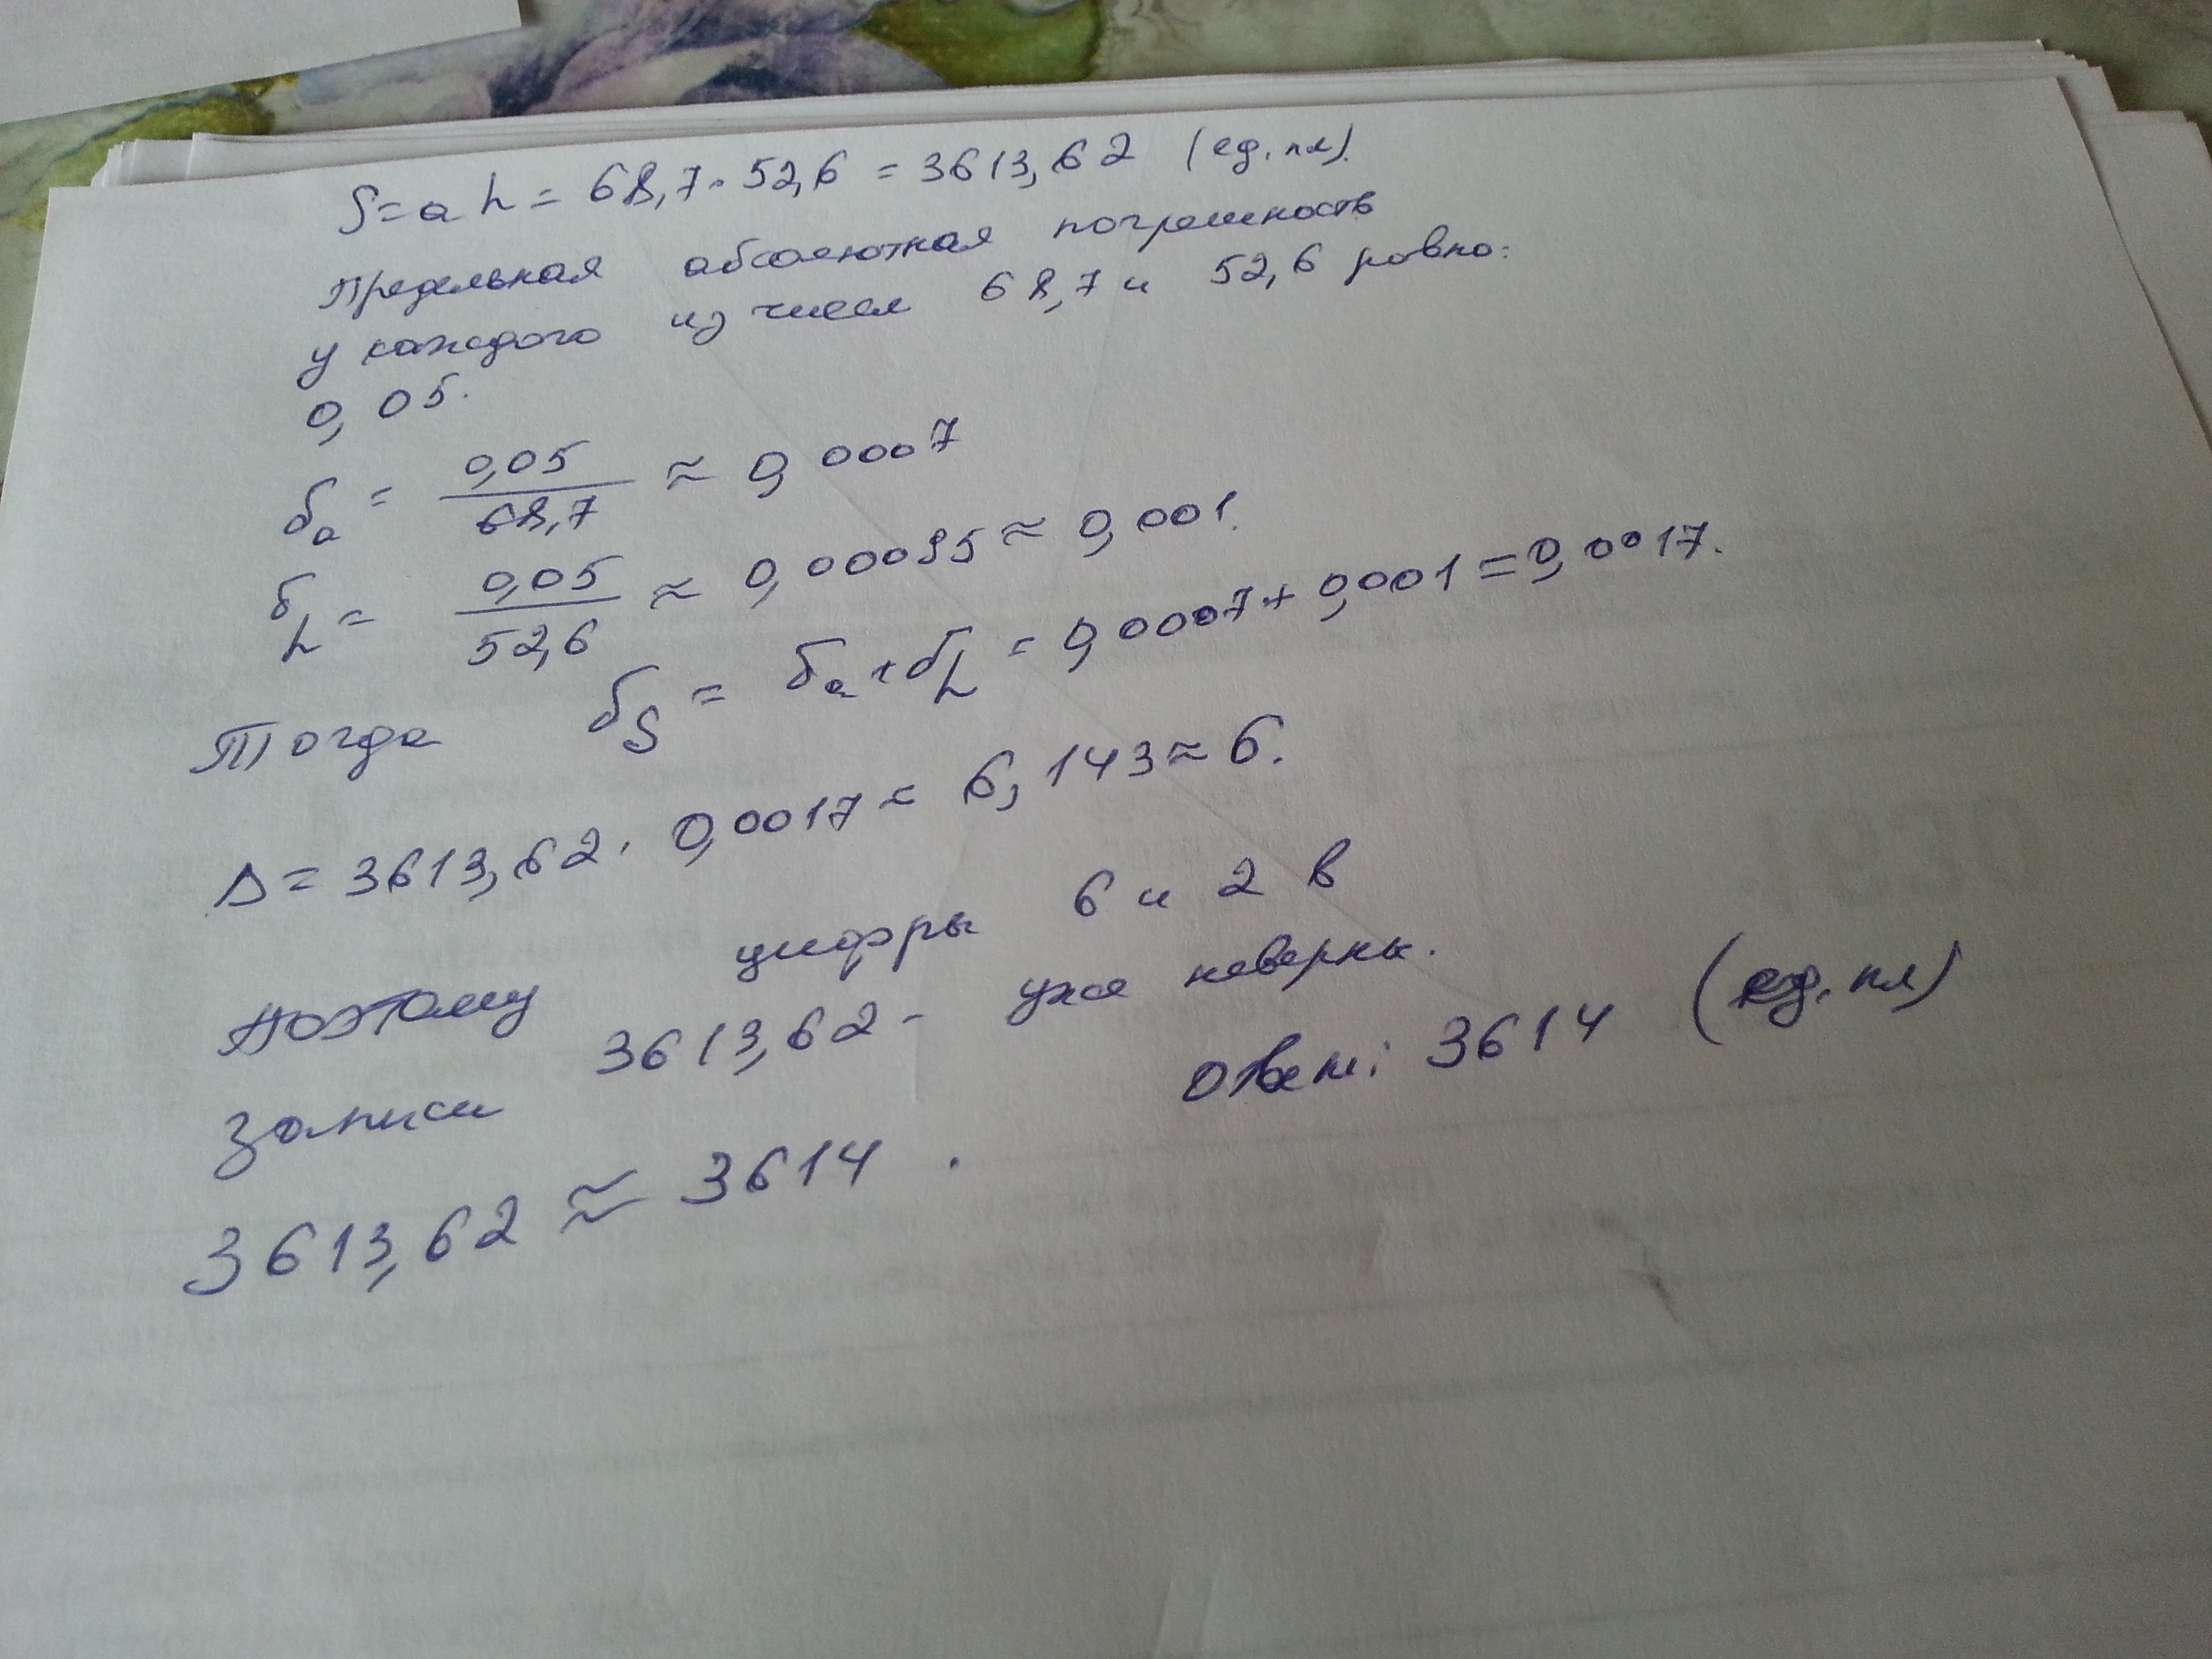 S = a h = 68,7 · 52,6 = 3613,62 (ед. пл).
Предельная абсолютная погрешность
у каждого из чисел 68,7 и 52,6 равно:
0,05.
δa = 0,05/68,7 ≈ 0,0007
δh = 0,05/52,6 ≈ 0,00095 ≈ 0,001.
Тогда δS = δa + δh = 0,0007 + 0,001 = 0,0017.
Δ = 3613,62 · 0,0017 = 6,143 ≈ 6.
Поэтому цифры 6 и 2 в
записи 3613,62 - уже неверны.
3613,62 ≈ 3614.
Ответ: 3614 (ед. пл)